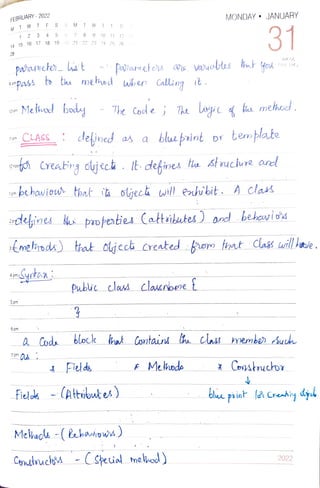 FEBRUARY - 2022
MONDAY • JANUARY
31
M T W T F S S M T W T F S S
1 2 3 4 5 6 7 8 9 10 11 12 13
14 15 16 17 18 19 20 21 22 23 24 25 26 27
28
parameter_list - parameters are variables that you
pass to the method when calling it.
Method body - The code ; The logic of the method.
CLASS : defined as a blueprint or template
for creating objects. It defines the structure and
behaviour that its objects will exhibit. A class
defines the properties (attributes) and behaviors
(methods) that objects created from that class will have.
Syntax:
public class classname {
}
a code block that contains the class member such
as :
* Fields * Methods * Constructor
↓
Fields - (Attributes) blue print for creating
Methods - (Behaviours)
Constructors - (Special method)
2022